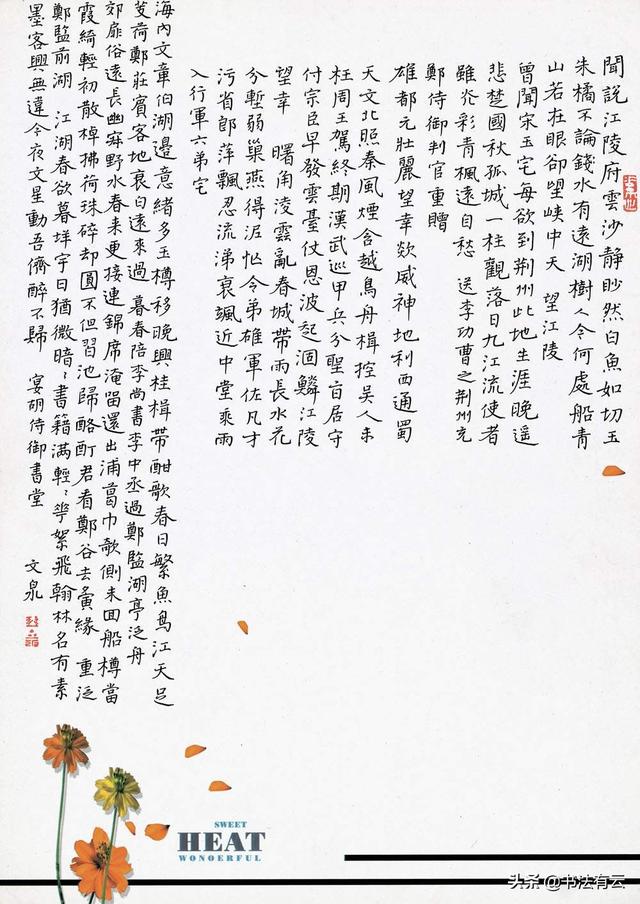 聞說江陵府雲沙靜眇然白魚如切玉
朱橘不論錢水有遠湖樹人今何處船青
山若在眼卻望峽中天 望江陵
曾聞宋玉宅每欲到荆州此地生涯晚遥
悲楚國秋孤城一柱觀落日九江流使者
雖光彩青楓遠自愁 送李功曹之荆州充
鄭侍御判官重贈
雄都元壯麗望幸欻威神地利西通蜀
天文北照秦風煙含越鳥舟楫控吴人未
枉周王駕終期漢武巡甲兵分聖旨居守
付宗臣早發雲臺仗恩波起涸鱗江陵
望幸 曙角淩雲亂春城帶雨長水花
分塹弱巢燕得泥忙令弟雄軍佐凡才
污省郎萍飄忍流涕衰颯近中堂乘雨
入行軍六弟宅
海内文章伯湖邊意緒多玉樽移晚興桂楫帶酣歌春日繁魚鳥江天足
芰荷鄭莊賓客地衰白遠來過 暮春陪李尚書李中丞過鄭監湖亭泛舟
郊扉俗遠長幽寂野水春來更接連錦席淹留還出浦葛巾欹側未回船樽當
霞綺輕初散棹拂荷珠碎却圓不但習池歸酩酊君看鄭谷去夤緣 重泛
鄭監前湖 江湖春欲暮墻宇日猶微暗〻書籍满輕〻花絮飛翰林名有素
墨客興無違今夜文星動吾儕醉不歸 宴胡侍御書堂 文泉
SWEET
HEAT
WONOERFUL
头条 @书法有云